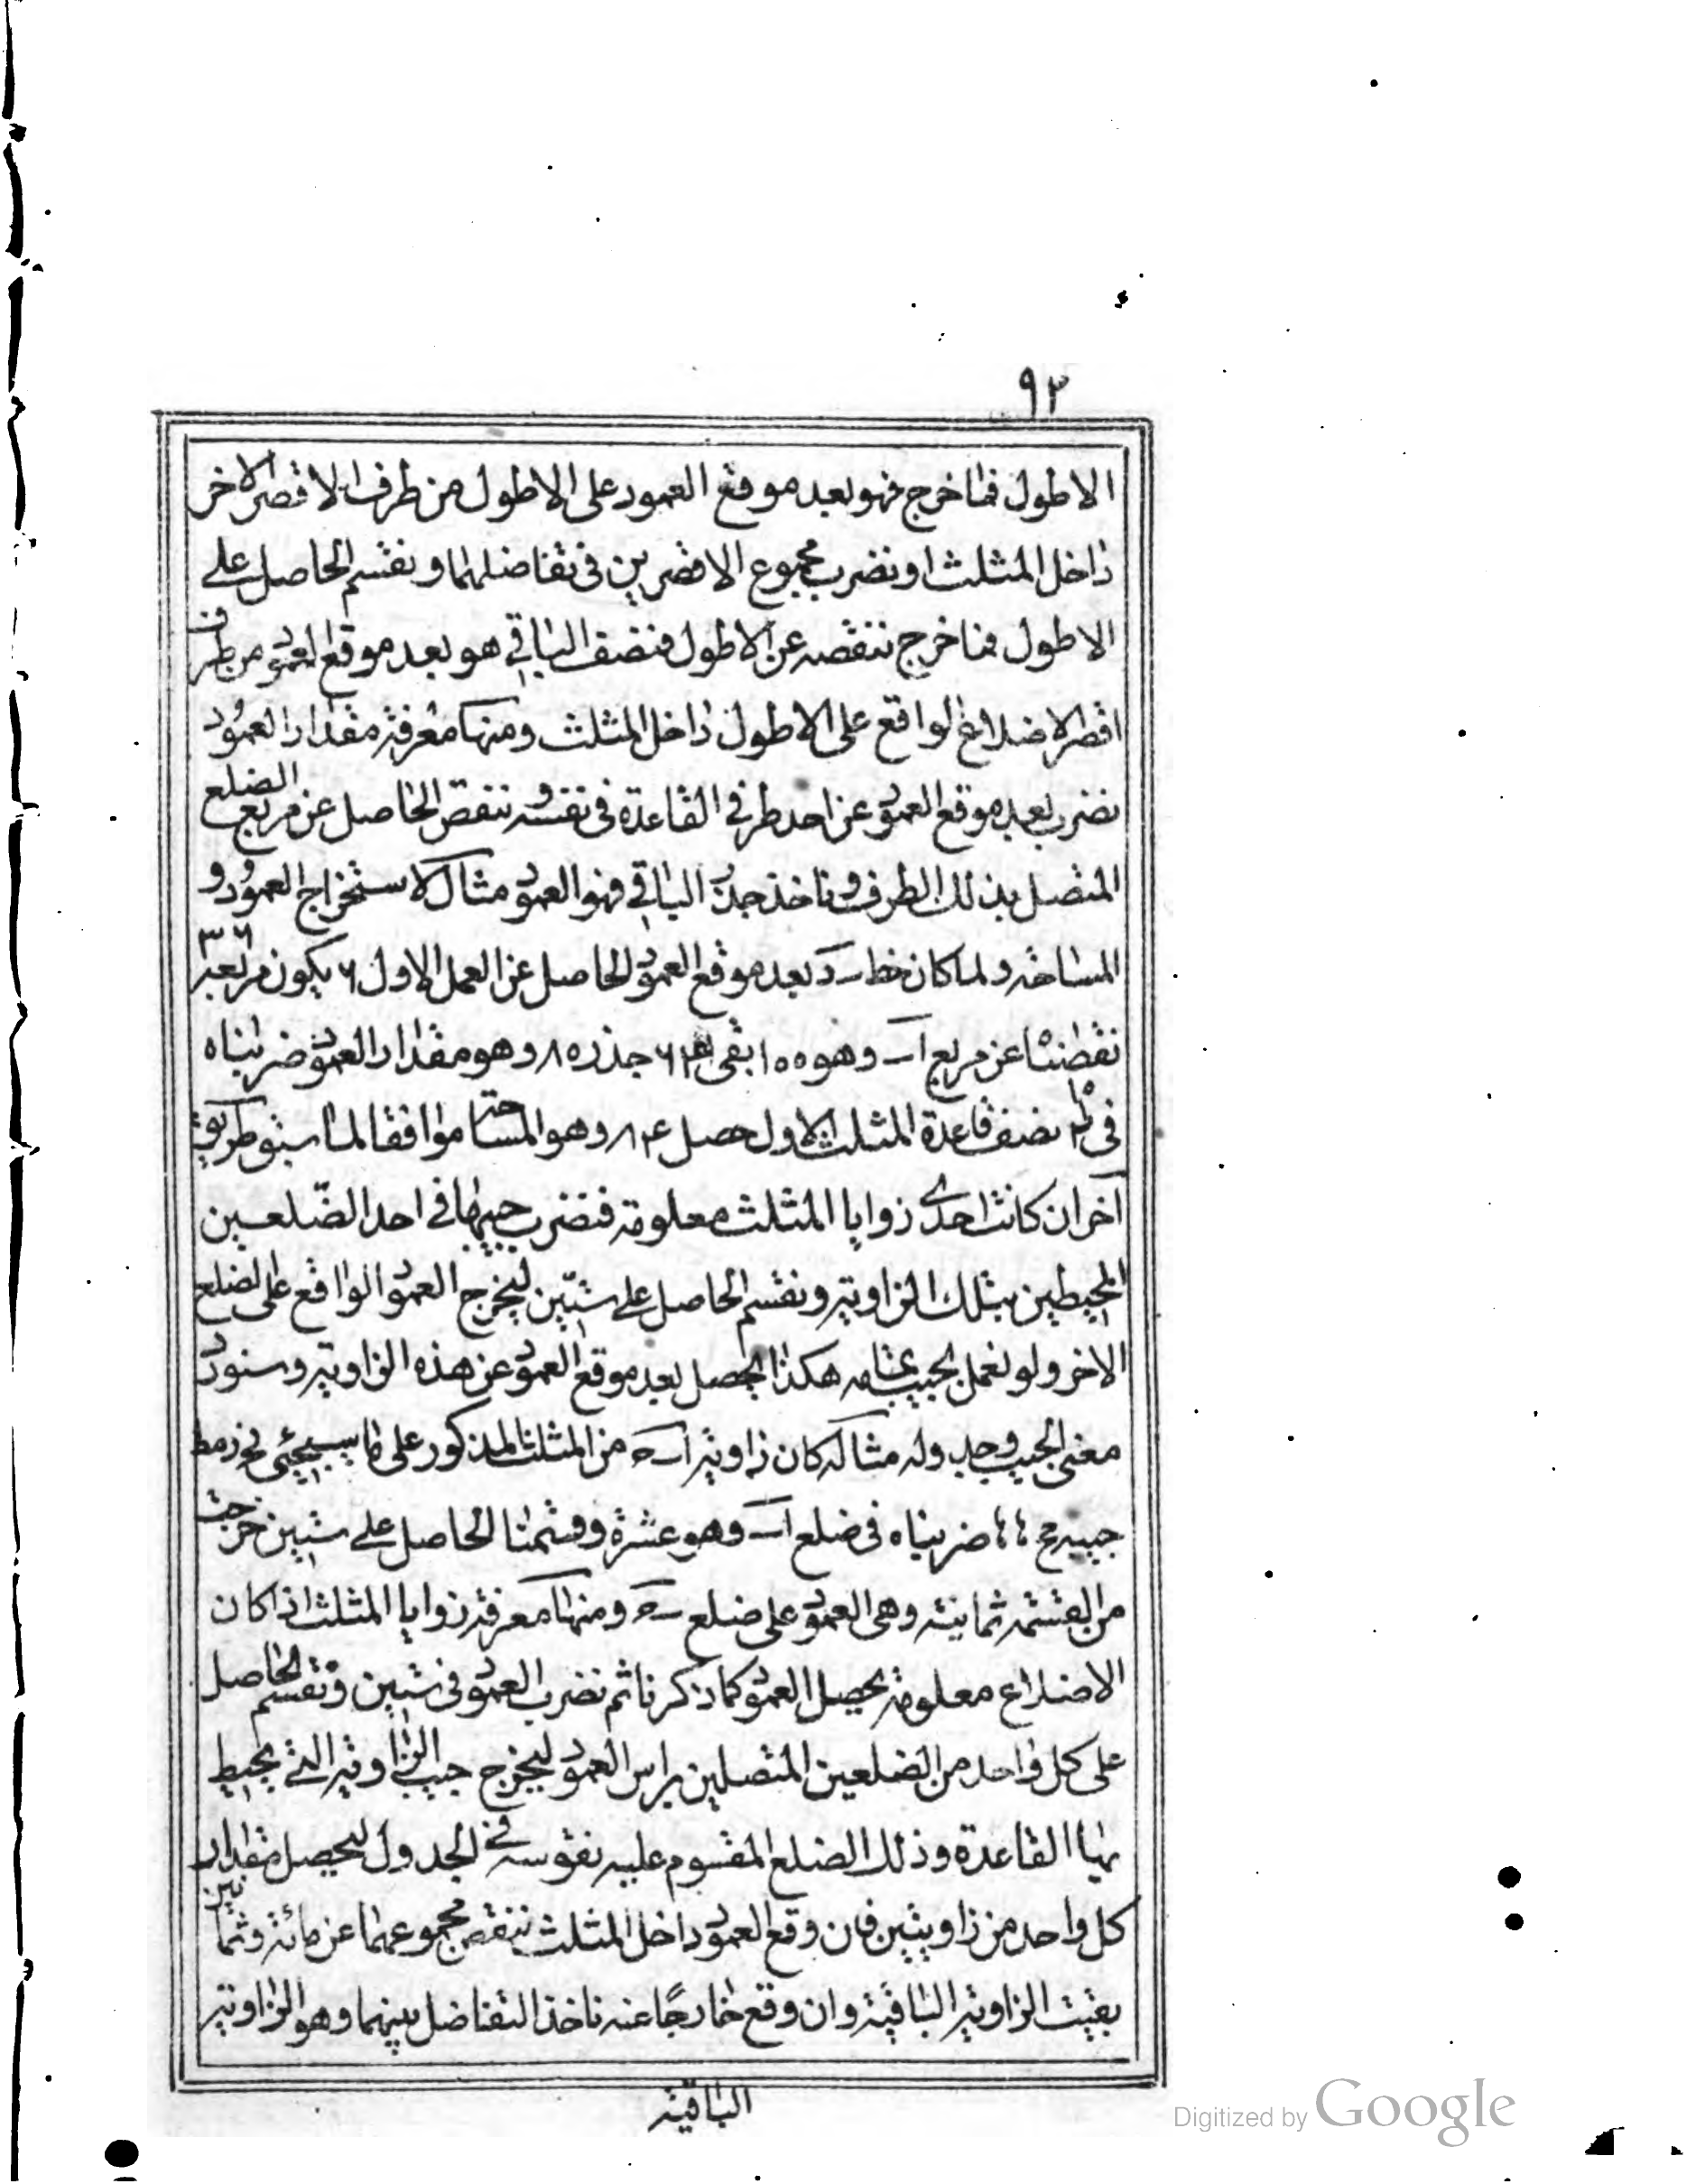 ٩٣
الاطول فما خرج فهو بعد موقع العمود على الاطول من طرف الاقصر الاخر
داخل المثلث او نضرب مجموع الاقصرين فى تفاضلهما ونقسم الحاصل على
الاطول فما خرج ننقصه عن الاطول فنصف الباقى هو بعد موقع العمود من طرف
اقصر الاضلاع الواقع على الاطول داخل المثلث ومنها معرفة مقدار العمود
نضرب بعد موقع العمود عن احد طرفى القاعدة فى نفسه وننقص الحاصل عن مربع الضلع
المتصل بذلك الطرف وناخذ جذر الباقى فهو العمود مثال لاستخراج العمود و
المساحة ولما كان خط ٮد بعد موقع العمود الحاصل عن العمل الاول ٦ يكون مربعه ٣٦
نقصناها عن مربع اٮ وهو ١٠٠ بقى ٦٤ جذره ٨ وهو مقدار العمود ضربناه
فى نصف قاعدة المثلث الاول حصل ٨٤ وهو المساحة موافقا لما سبق طريق
آخر ان كانت احدى زوايا المثلث معلومة فنضرب جيبها فى احد الضلعين
المحيطين بتلك الزاوية ونقسم الحاصل على ستين ليخرج العمود الواقع على الضلع
الاخر ولو نعمل بجيب تمامه هكذا يحصل بعد موقع العمود عن هذه الزاوية وسنورد
معنى الجيب وجدوله مثاله كان زاوية اٮح من المثلث المذكور على ما سيجئ نح ز مط
جيبه مح ضربناه فى ضلع اٮ وهو عشرة وقسمنا الحاصل على ستين خرجت
من القسمة ثمانية وهى العمود على ضلع ٮح ومنها معرفة زوايا المثلث اذا كان
الاضلاع معلومة يحصل العمود كما ذكرنا ثم نضرب العمود فى ستين ونقسم الحاصل
على كل واحد من الضلعين المتصلين براس العمود ليخرج جيب الزاوية التى يحيط
بها القاعدة وذلك الضلع المقسوم عليه نقوسه فى الجدول ليحصل مقدار
كل واحد من زاويتين فان وقع العمود داخل المثلث ننقص مجموعهما عن مائة وثمانين
بقيت الزاوية الباقية وان وقع خارجًا عنه ناخذ التفاضل بينهما وهو الزاوية
الباقية
Digitized by Google